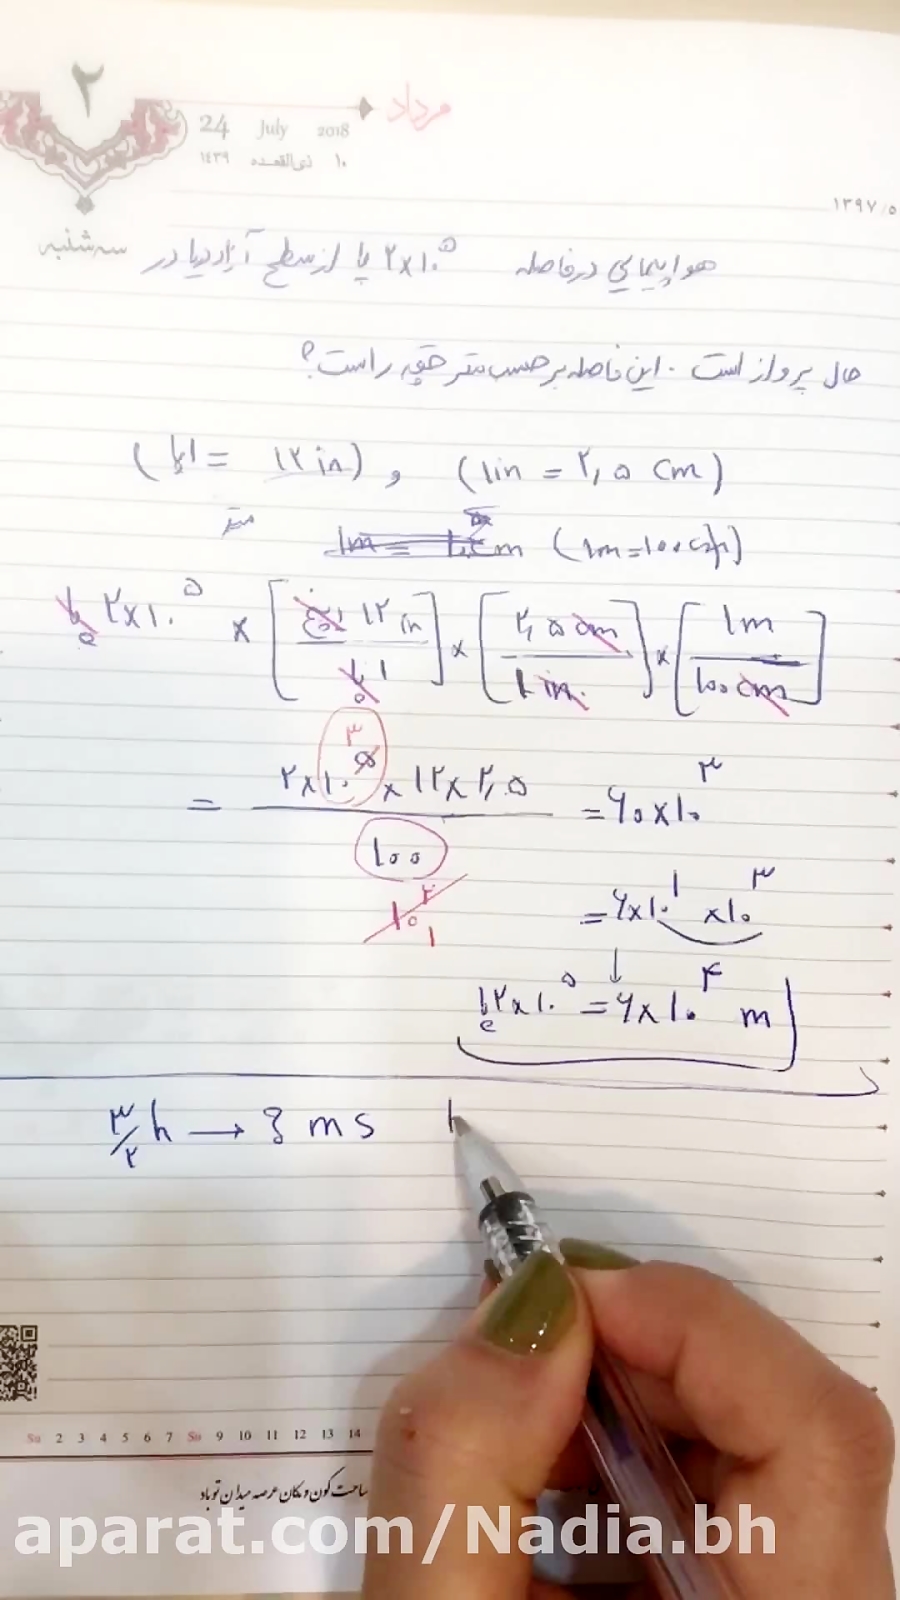 ۲
مرداد
24 July 2018
۱۰ ذی‌القعده ۱۴۳۹
۱۳۹۷/۵
سه شنبه
هواپیمایی در فاصله ۲×۱۰^۵ پا از سطح آزاد دریا در
حال پرواز است. این فاصله بر حسب متر چقدر است؟
(۱in = ۲,۵ cm) و (۱۲ in = ۱پا)
متر
(۱m=۱۰۰cm)
پا ۲×۱۰^۵ × [۱۲ in / ۱ پا] × [۲,۵ cm / ۱ in] × [۱m / ۱۰۰ cm]
= ۲×۱۰^۵ × ۱۲×۲,۵ / ۱۰۰ = ۶۰×۱۰^۳
۳
۱۰^۲
۱
= ۶×۱۰^۱ ×۱۰^۳
↓
پا ۲×۱۰^۵ = ۶×۱۰^۴ m
۳/۲ h → ? ms
Su 2 3 4 5 6 7 Su 9 10 11 12 13 14
ساحت کون و مکان عرصه میدان تو باد
aparat.com/Nadia.bh